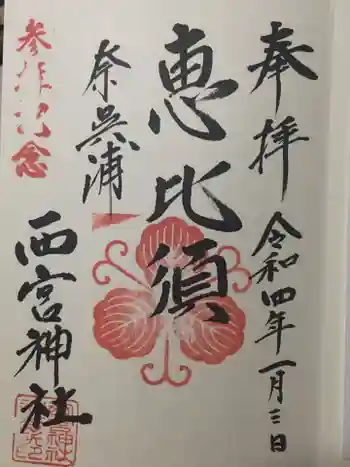 奉拝
令和四年一月三日
恵比須
奈呉浦
西宮神社
参拝記念